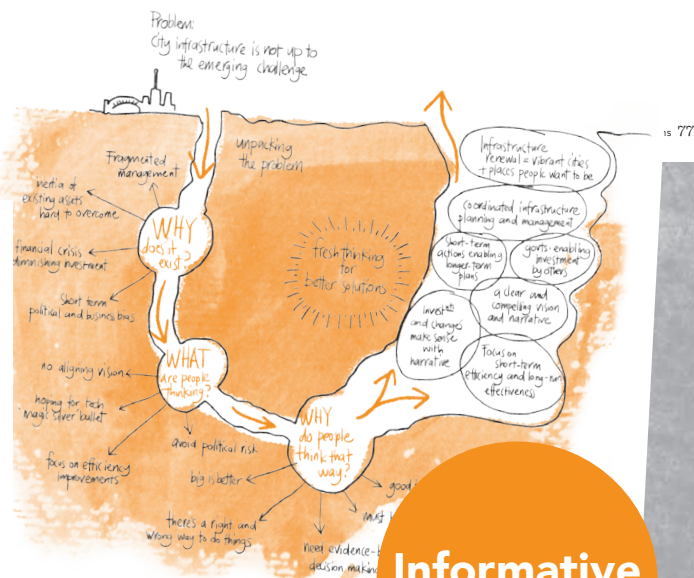 Problem:
City infrastructure is not up to
the emerging challenge
ns 77
unpacking
the problem
Fragmented
management
inertia of
existing assets
hard to overcome
WHY
does it
exist?
financial crisis
diminishing investment
Short term
political and business bias
WHAT
are people
thinking?
no aligning vision
hoping for tech
'magic silver bullet'
focus on efficiency
improvements
avoid political risk
WHY
do people
think that
way?
big is better
there's a right and
wrong way to do things
need evidence-b
decision making
must
good
fresh thinking
for
better solutions
Infrastructure
renewal = vibrant cities
+ places people want to be
coordinated infrastructure
planning and management
short-term
actions enabling
longer-term
plans
govts. enabling
investment
by others
a clear and
compelling vision
and narrative
Invest
and changes
make sense
with
narrative
Focus on
short-term
efficiency and long-run
effectiveness
Informative